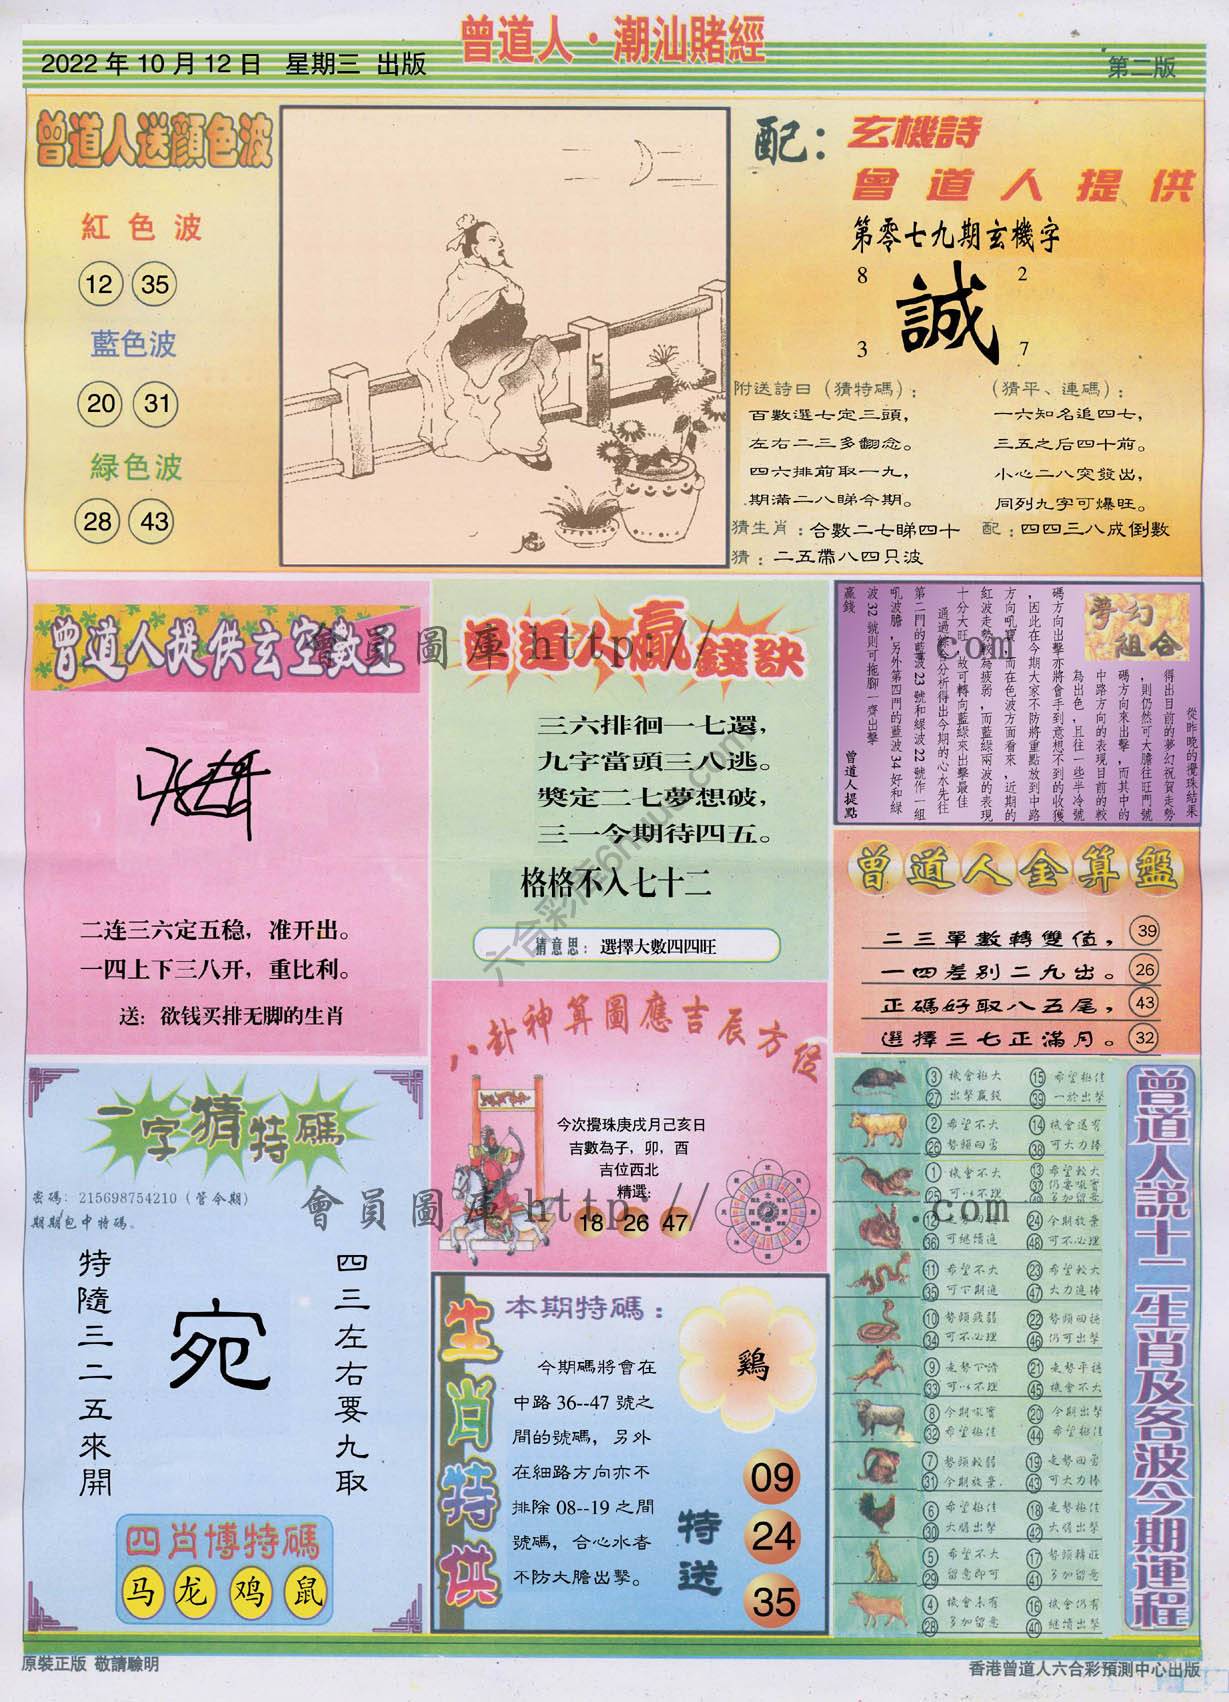 曾道人·潮汕賭經
2022年10月12日 星期三 出版
第二版
曾道人送顏色波
紅色波
12 35
藍色波
20 31
緑色波
28 43
5
配：
玄機詩
曾道人提供
第零七九期玄機字
8 2
誠
3 7
附送詩曰（猜特碼）：
百數選七定三頭，
左右二三多翻念。
四六排前取一九，
期滿二八睇今期。
（猜平、連碼）：
一六知名追四七，
三五之后四十前。
小心二八突發出，
同列九字可爆旺。
猜生肖：合數二七睇四十
配：四四三八成倒數
猜：二五帶八四只波
曾道人提供玄空數王
二连三六定五稳，准开出。
一四上下三八开，重比利。
送：欲钱买排无脚的生肖
曾道人贏錢訣
三六排徊一七還，
九字當頭三八逃。
獎定二七夢想破，
三一今期待四五。
格格不入七十二
猜意思：選擇大數四四旺
夢幻
組合
從昨晚的攪珠結果
得出目前的夢幻祝賀走勢
，則仍然可大膽往旺門號
碼方向來出擊，而其中的
中路方向的表現目前的較
為出色，且往一些半冷號
碼方向出擊亦將會手到意想不到的收獲
，因此在今期大家不防將重點放到中路
方向吼寶，而在色波方面看來，近期的
紅波走勢較為疲弱，而藍綠兩波的表現
十分大旺，故可轉向藍綠來出擊最佳
通過綜合分析得出今期的心水先往
第二門的藍波23號和绿波22號作一組
吼波膽，另外第四門的藍波34好和绿
波32號則可拖腳一齊出擊
贏錢
曾道人提點
曾道人金算盤
二三單數轉雙值， 39
一四差別二九出。 26
正碼好取八五尾， 43
選擇三七正滿月。 32
八卦神算圖應吉辰方位
今次攪珠庚戌月己亥日
吉數為子，卯，酉
吉位西北
精選：
18 26 47
一字猜特碼
密碼：215698754210（管今期）
期期包中特碼。
特隨三二五來開
宛
四三左右要九取
四肖博特碼
马 龙 鸡 鼠
生肖特供
本期特碼：
今期碼將會在
中路36--47號之
間的號碼，另外
在細路方向亦不
排除08--19之間
號碼，合心水者
不防大膽出擊。
鷄
特送
09
24
35
曾道人説十二生肖及各波今期運程
3 機會極大 15 希望極佳
27 出擊贏錢 39 一於出擊
2 希望不大 14 機會還有
26 勢頭回勇 38 可大力捧
1 機會不大 13 希望較大
25 可以不理 37 仍要吼實
49 多加留意
12 24 今期放棄
36 可繼續進 48 可不必理
11 希望不大 23 希望較大
35 可下期進 47 大力進捧
10 勢頭疲弱 22 勢頭回穩
34 可不必理 46 仍可出擊
9 走勢下滑 21 走勢平穩
33 可以不理 45 機會不大
8 今期吼實 20 今期出擊
32 希望極佳 44 希望極佳
7 勢頭較弱 19 走勢回勇
31 今期放棄 43 可大力捧
6 希望極佳 18 走勢極佳
30 大膽出擊 42 大膽出擊
5 希望不大 17 勢頭精旺
29 留意即可 41 多加留意
4 機會未有 16 機會仍有
28 多加留意 40 繼續出擊
會員圖庫 http:// .com
會員圖庫 http:// .com
原裝正版 敬請驗明
香港曾道人六合彩預測中心出版